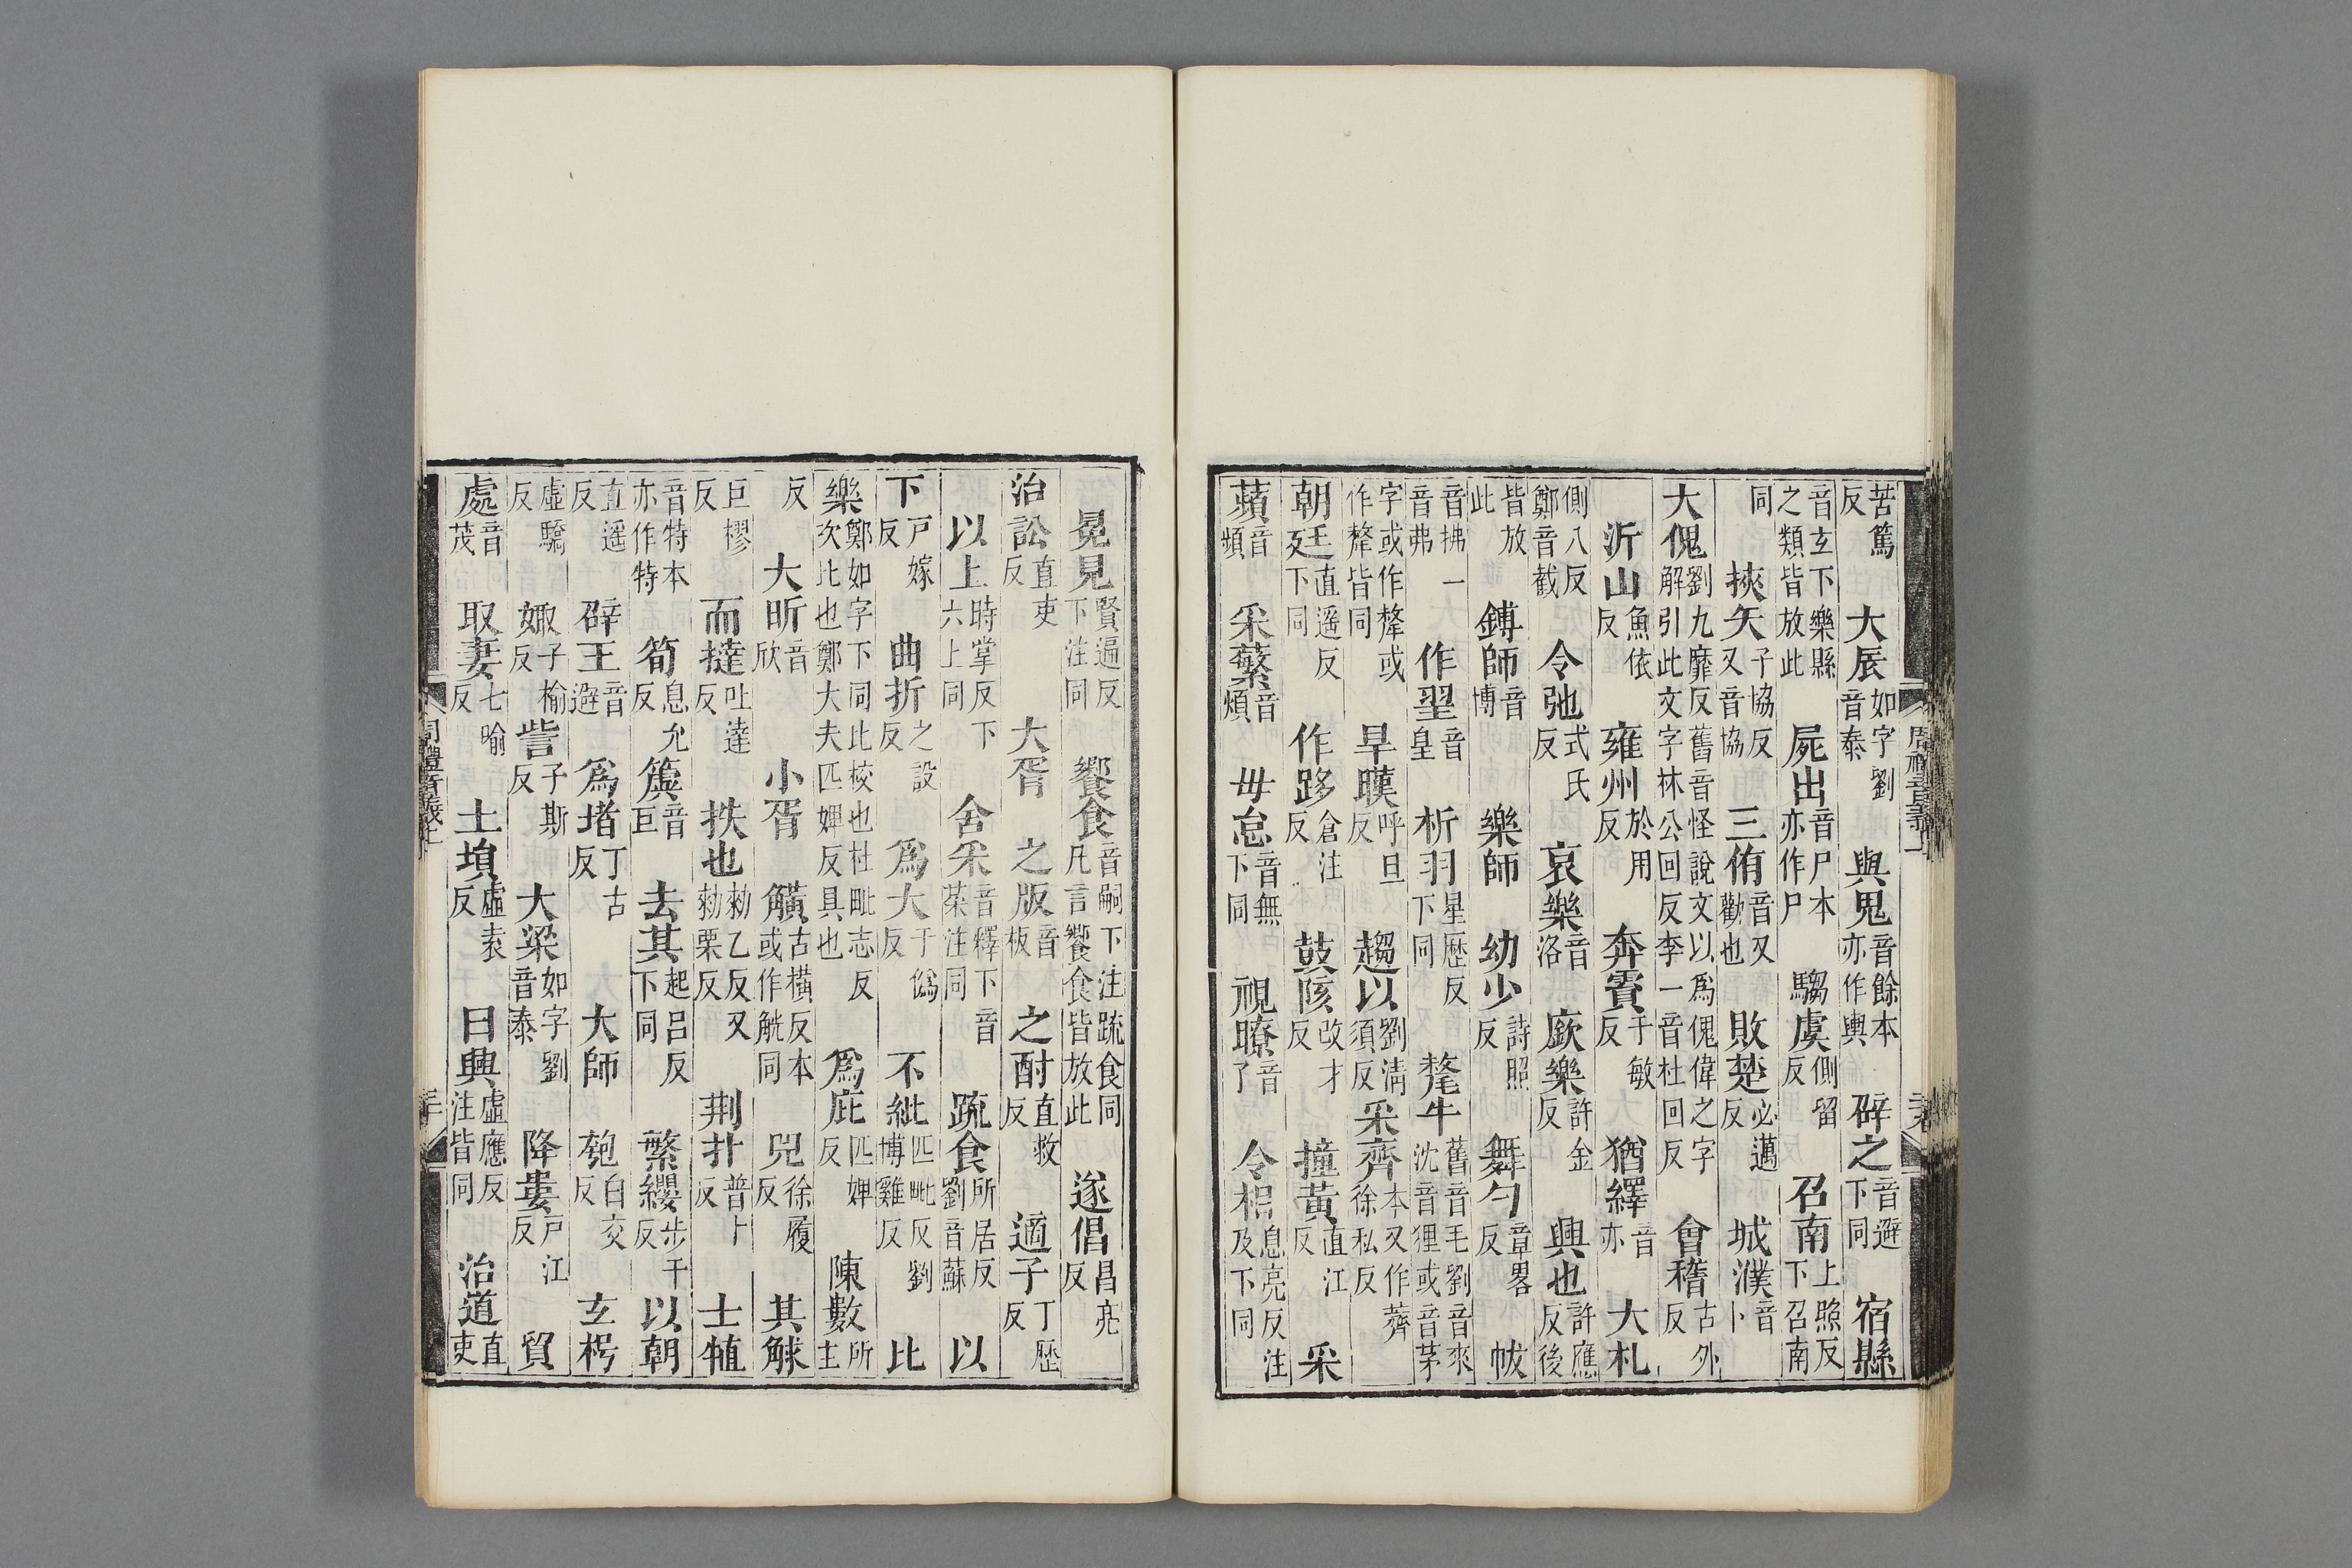 苦篤反 大辰如字劉音泰 與鬼音餘本亦作輿 辟之音避下同 宿縣
音玄下樂縣之類皆放此 屍出音尸本亦作尸 騶虞側留反 召南上照反下召南
同 挾矢子協反又音協 三侑音又勸也 敗楚必邁反 城濮音卜
大傀劉九靡反舊音怪說文以爲傀偉之字解引此文字林公回反李一音杜回反 會稽古外反
沂山魚依反 雍州於用反 奔霣于敏反 猶繹音亦 大札
側八反鄭音截 令弛式氏反 哀樂音洛 廞樂許金反 興也許應反後
皆放此 鎛師音博 樂師 幼少詩照反 舞勺章畧反 帗
音拂一音弗 作翌音皇 析羽星歷反下同 氂牛舊音毛劉音來沈音狸或音茅
字或作犛或作斄皆同 旱暵呼旦反 趨以劉清須反 采齊本又作薺徐私反
朝廷直遥反下同 作跢倉注反 鼓陔改才反 撞黃直江反 采
蘋音頻 采蘩音煩 毋怠音無下同 視瞭音了 令相息亮反注及下同
冕見賢遍反下注同 饗食音嗣下注疏食同凡言饗食皆放此 遂倡昌亮反
治訟直吏反 大胥 之版音板 之酎直救反 適子丁歷反
以上時掌反下六上同 舍采音釋下音菜注同 疏食所居反劉音蘇 以
下戶嫁反 曲折之設反 爲大于僞反 不紕匹毗反劉博雞反 比
樂鄭如字下同此校也杜毗志反次比也鄭大夫匹婢反具也 爲庇匹婢反 陳數所主
反 大昕音欣 小胥 觵古橫反本或作觥同 兕徐履反 其觩
巨樛反 而撻吐達反 抶也勑乙反又勑栗反 荆扑普卜反 士犆
音特本亦作特 筍息允反 簴音巨 去其起吕反下同 繁纓步干反 以朝
直遥反 辟王音避 爲堵丁古反 大師 匏白交反 玄枵
虛驕反 娵子榆反 訾子斯反 大梁如字劉音泰 降婁戶江反 貿
處音茂 取妻七喻反 土塤虛袁反 曰興虛應反注皆同 治道直吏
周禮音義上